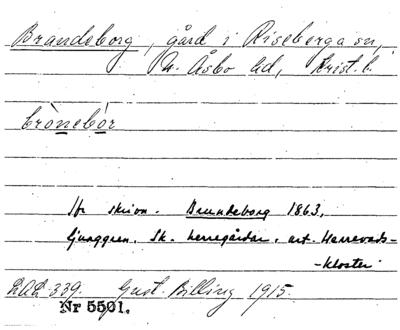 Brandeborg, gård i Riseberga sn,
N. Åsbo hd, Krist. l.
brònebór
Jfr skrivn. Brundeborg 1863,
Ljunggren, Sk. herregårdar, art. Herrevads-
-kloster
LAL 339. Gust. Billing 1915.
Nr 5501.